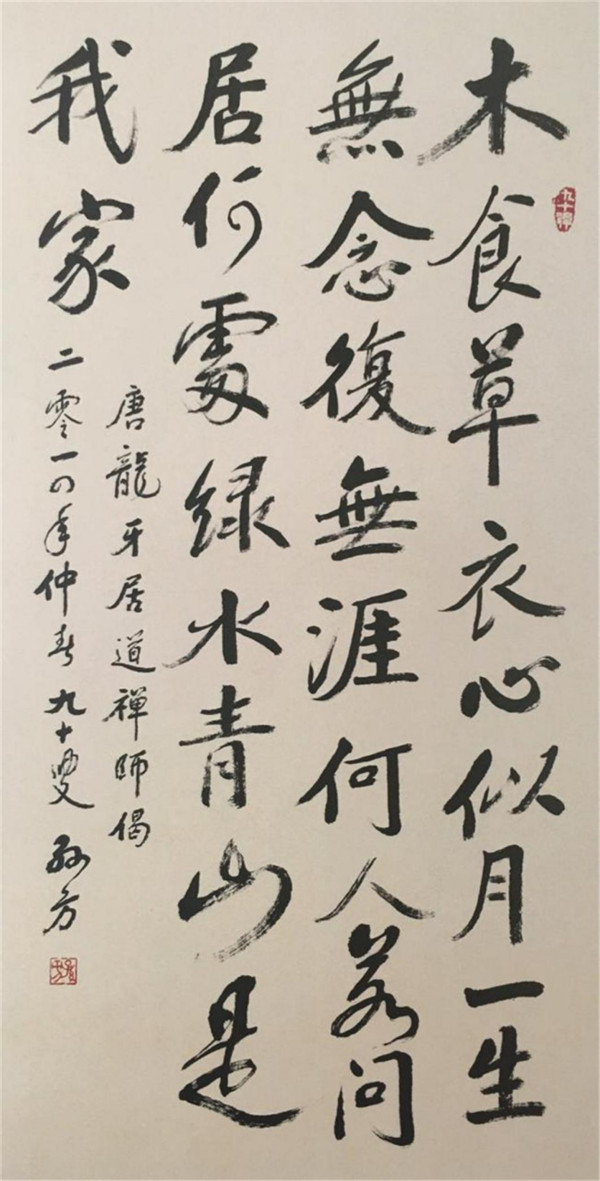 木食草衣心似月一生
無念復無涯何人若問
居何處绿水青山是
我家
唐龍牙居道禪師偈
二零一四年仲春九十叟孫方